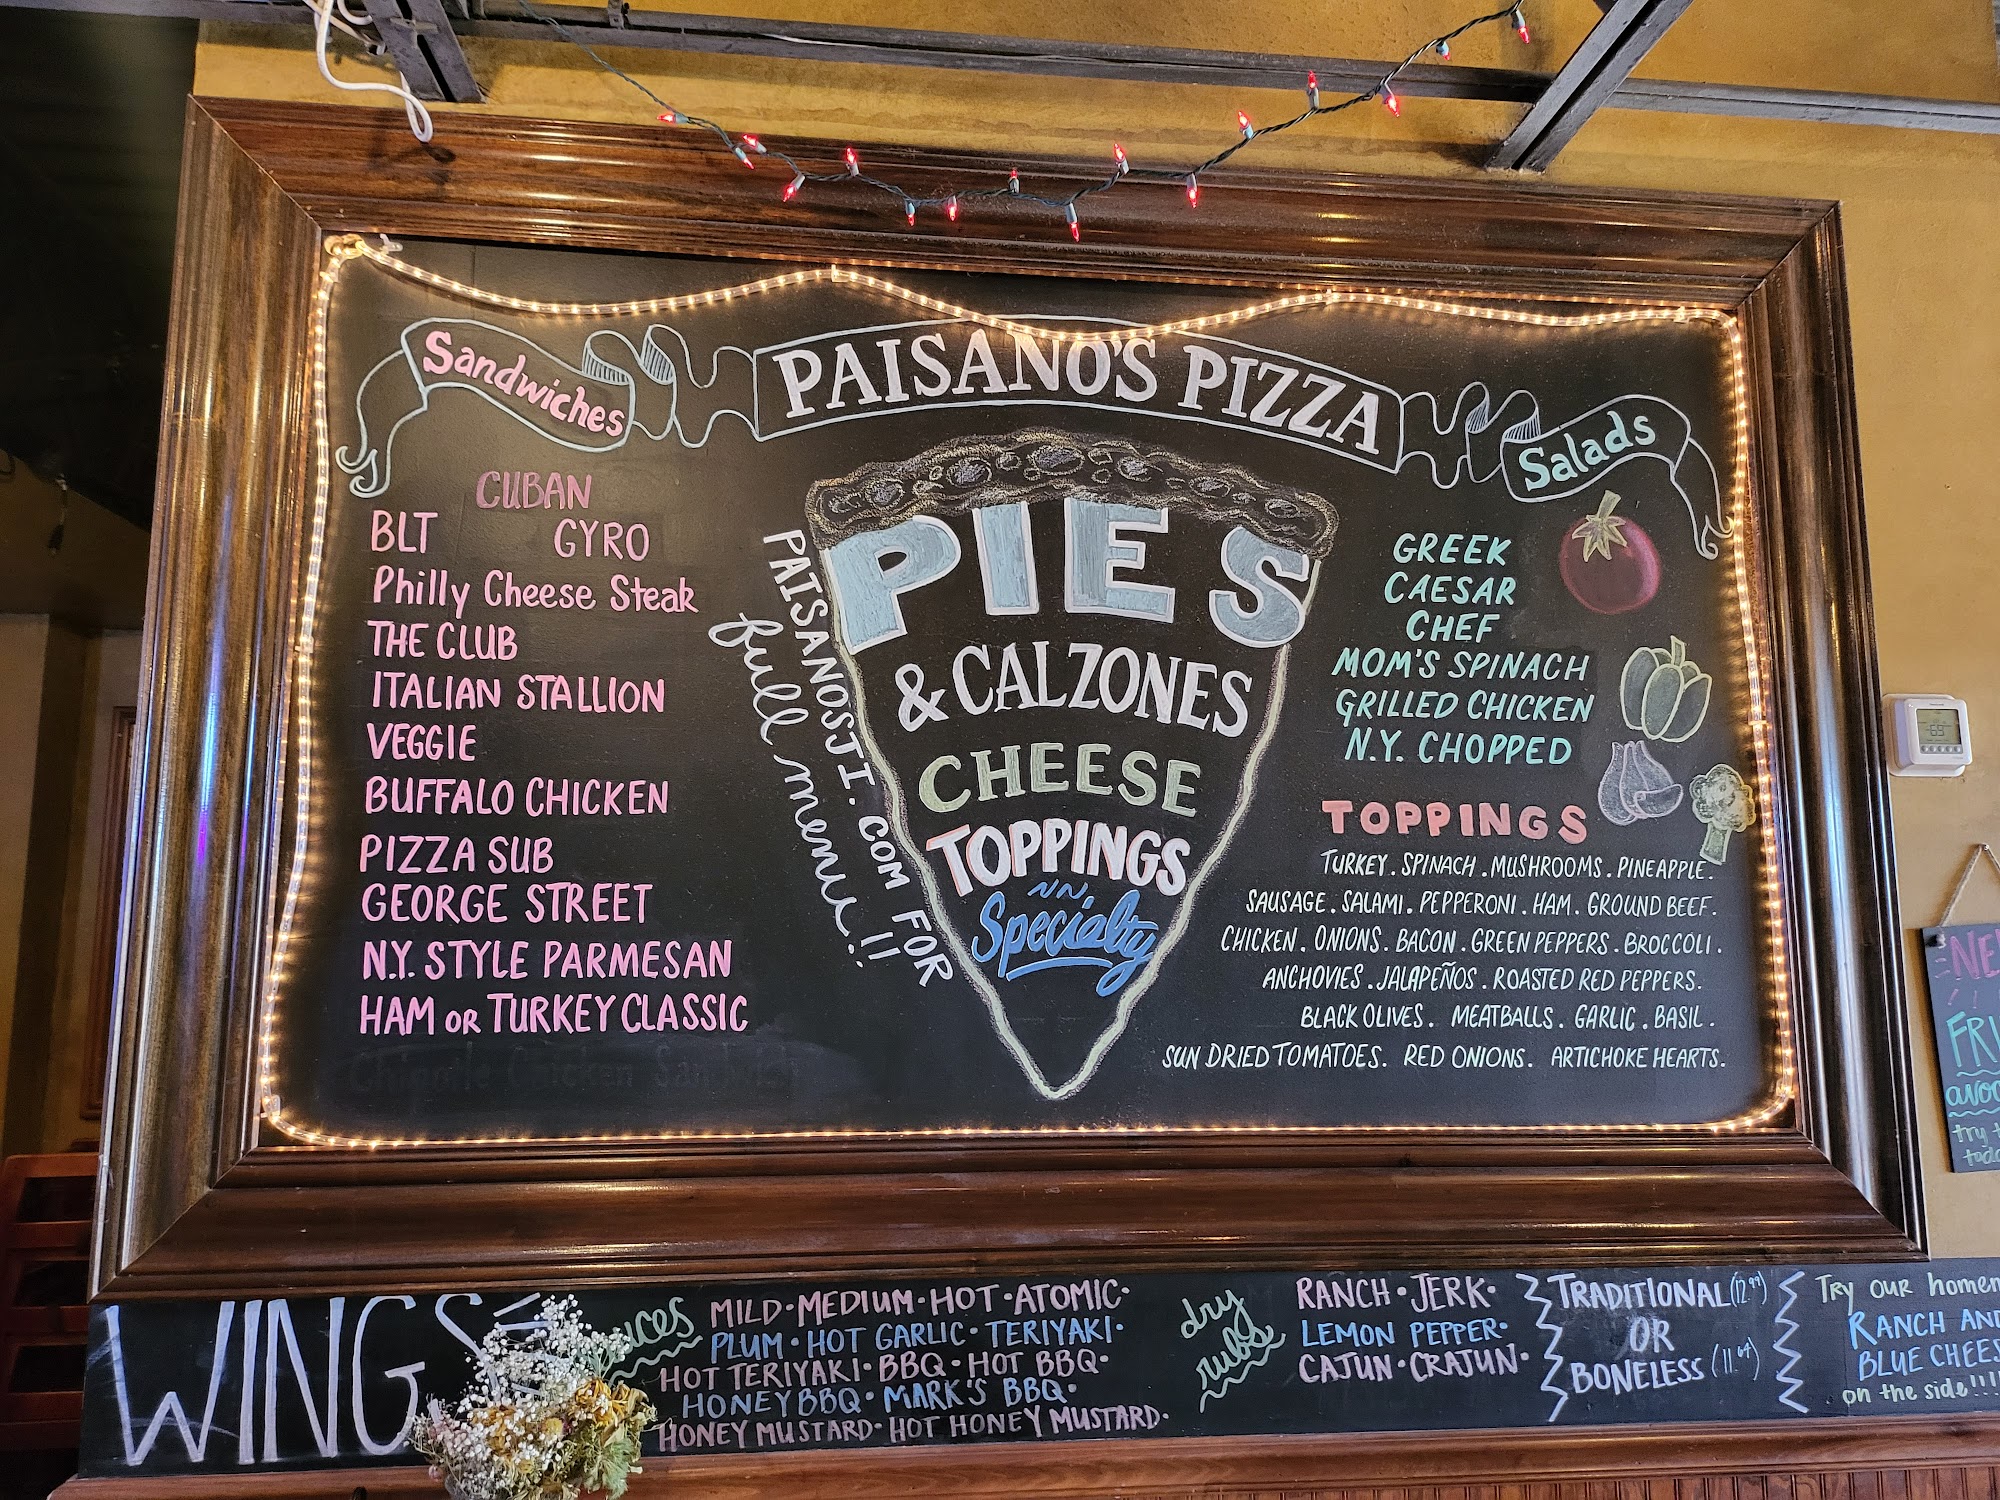 PAISANO'S PIZZA
Sandwiches
CUBAN
BLT GYRO
Philly Cheese Steak
THE CLUB
ITALIAN STALLION
VEGGIE
BUFFALO CHICKEN
PIZZA SUB
GEORGE STREET
N.Y. STYLE PARMESAN
HAM OR TURKEY CLASSIC
Chipotle Chicken
PAISANOSJI.COM FOR
full menu!!
PIES
& CALZONES
CHEESE
TOPPINGS
Specialty
Salads
GREEK
CAESAR
CHEF
MOM'S SPINACH
GRILLED CHICKEN
N.Y. CHOPPED
TOPPINGS
TURKEY. SPINACH. MUSHROOMS. PINEAPPLE.
SAUSAGE. SALAMI. PEPPERONI. HAM. GROUND BEEF.
CHICKEN. ONIONS. BACON. GREEN PEPPERS. BROCCOLI.
ANCHOVIES. JALAPEÑOS. ROASTED RED PEPPERS.
BLACK OLIVES. MEATBALLS. GARLIC. BASIL.
SUN DRIED TOMATOES. RED ONIONS. ARTICHOKE HEARTS.
WINGS
MILD · MEDIUM · HOT · ATOMIC ·
PLUM · HOT GARLIC · TERIYAKI ·
HOT TERIYAKI · BBQ · HOT BBQ ·
HONEY BBQ · MARK'S BBQ ·
HONEY MUSTARD · HOT HONEY MUSTARD ·
dry
rubs
RANCH · JERK ·
LEMON PEPPER ·
CAJUN · CRAJUN ·
TRADITIONAL (12.99)
OR
BONELESS (11.64)
Try our
RANCH AND
BLUE
on the side!!!!
try